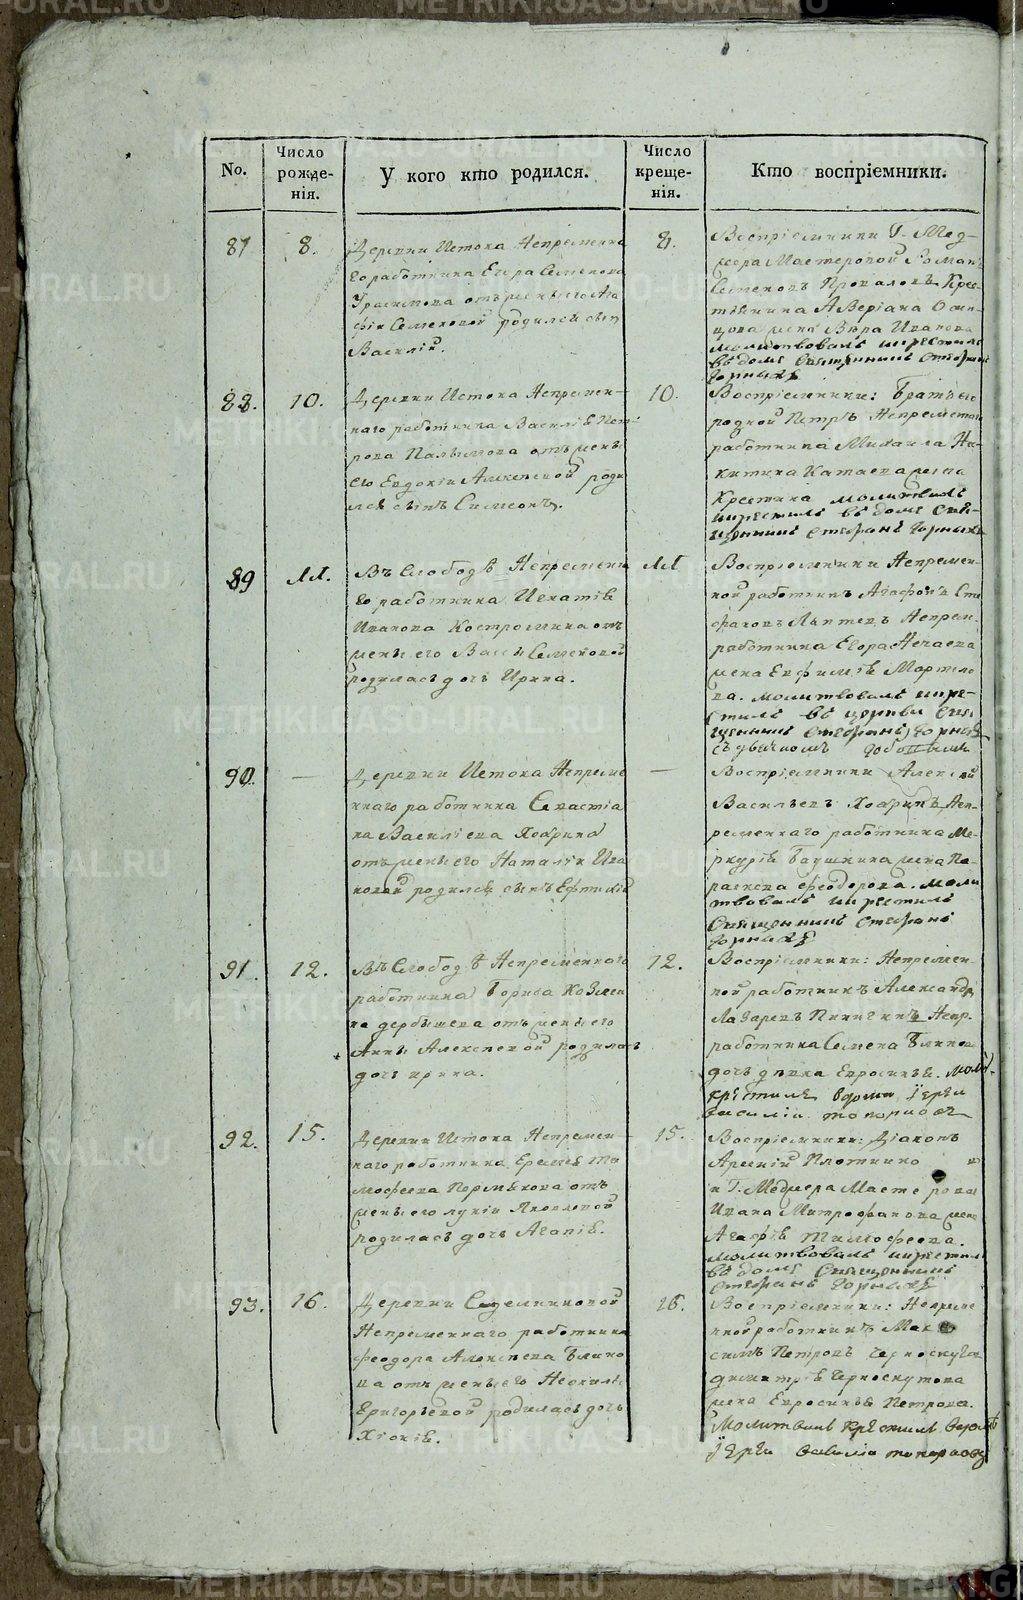 No.
Число рожденія.
У кого кто родился.
Число крещенія.
Кто воспріемники.
87
8.
Деревни Истока Непременна
го работника Егора Семенова
отъ жены его Ага
фіи Семеновой родился сынъ
Василій.
8.
Воспріемники Г. Мед-
жера Мастеровой Роман
Семеновъ Проваловъ Крес-
тьянина Аверіана Оси-
пова жена Вѣра Иванова
молитвовалъ и крестилъ
въ домѣ Священникъ Стефанъ
Горныхъ
88.
10.
Деревни Истока Непремен-
наго работника Василія Пет-
рова отъ жены
его Евдокіи Алексѣевой роди
лся сынъ Симеонъ.
10.
Воспріемники: Братъ его
родной Петръ Непременнаго
работника Михаила Ни-
китина Катаева жена
Крестина молитвовалъ
и крестилъ въ домѣ Свя-
щенникъ Стефанъ Горныхъ
89
11.
Въ Слободѣ Непременна
го работника Игнатія
Иванова Костромина отъ
жены его Вассы Семеновой
родилась дочь Ирина.
11
Воспріемники Непремен-
ной работникъ Агафонъ Сте
фановъ Лаптевъ Непрем.
работника Егора Нечаева
жена Евфимія Мартино
ва. молитвовалъ и кре-
стилъ въ церкви Свя
щенникъ Стефанъ Горныхъ
съ дьячкомъ
90.
—
Деревни Истока Непреме
ннаго работника Севастіа
на Василіева Ховрина
отъ жены его Наталіи Ива
новой родился сынъ Евтихій
—
Воспріемники Алексѣй
Васильевъ Хавринъ Неп-
ременнаго работника Ме-
ркурія Баушкина жена Па-
раскева Феодорова. моли
твовалъ и крестилъ
Священникъ Стефанъ
Горныхъ
91.
12.
Въ Слободѣ Непременнаго
работника Бориса Козми
на Дербышева отъ жены его
Анны Алексѣевой родилась
дочь Ирина.
12.
Воспріемники: Непремен-
ной работникъ Александръ
Лазаревъ Пиничкинъ Непр.
работника Семена Блинова
дочь дѣвка Евросинья. молит.
крестилъ въ доми Іерей
Василій Топорковъ
92.
15.
Деревни Истока Непремен-
наго работника Еремѣя Ти
мофеева Пермякова отъ
жены его Лукіи Яковлевой
родилась дочь Агапія.
15.
Воспріемники: Діаконъ
Арсеній Плотнико въ
и Г. Меджера Мастероваго
Ивана Митрофанова жена
Агафія Тимофеева.
молитвовалъ и крестилъ
въ домѣ Священникъ
Стефанъ Горныхъ
93.
16.
Деревни Седельниковой
Непременнаго работника
Феодора Алексѣева Блино
ва отъ жены его Неонилы
Григорьевой родилась дочь
Хіонія.
16.
Воспріемники: Непреме
нной работникъ Мак
симъ Петровъ Черноскутов
Димитрія Черноскутова
жена Евросинья Петрова.
Молитвилъ крестилъ въ домѣ
Іерей Василій Топорковъ